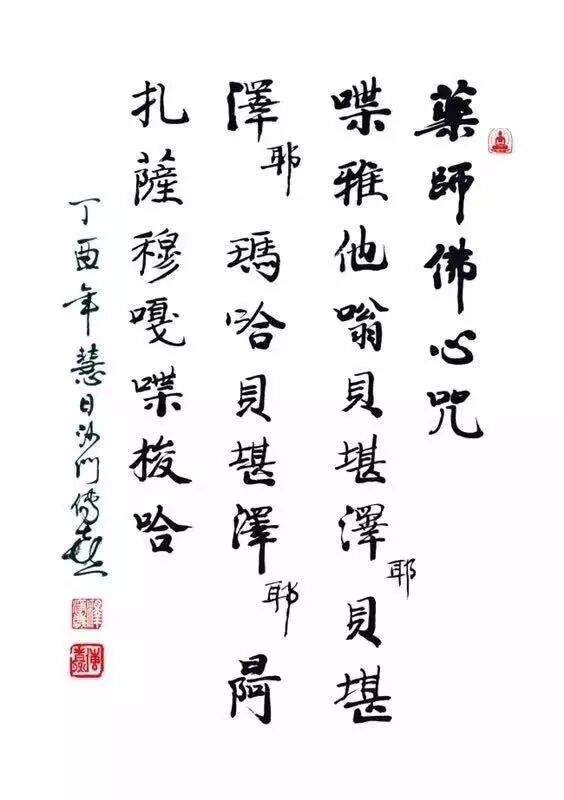 藥師佛心咒
喋雅他嗡貝堪澤耶貝堪
澤耶瑪哈貝堪澤耶
扎薩穆嘎喋梭哈
丁酉年慧日沙門傳喜
傳喜